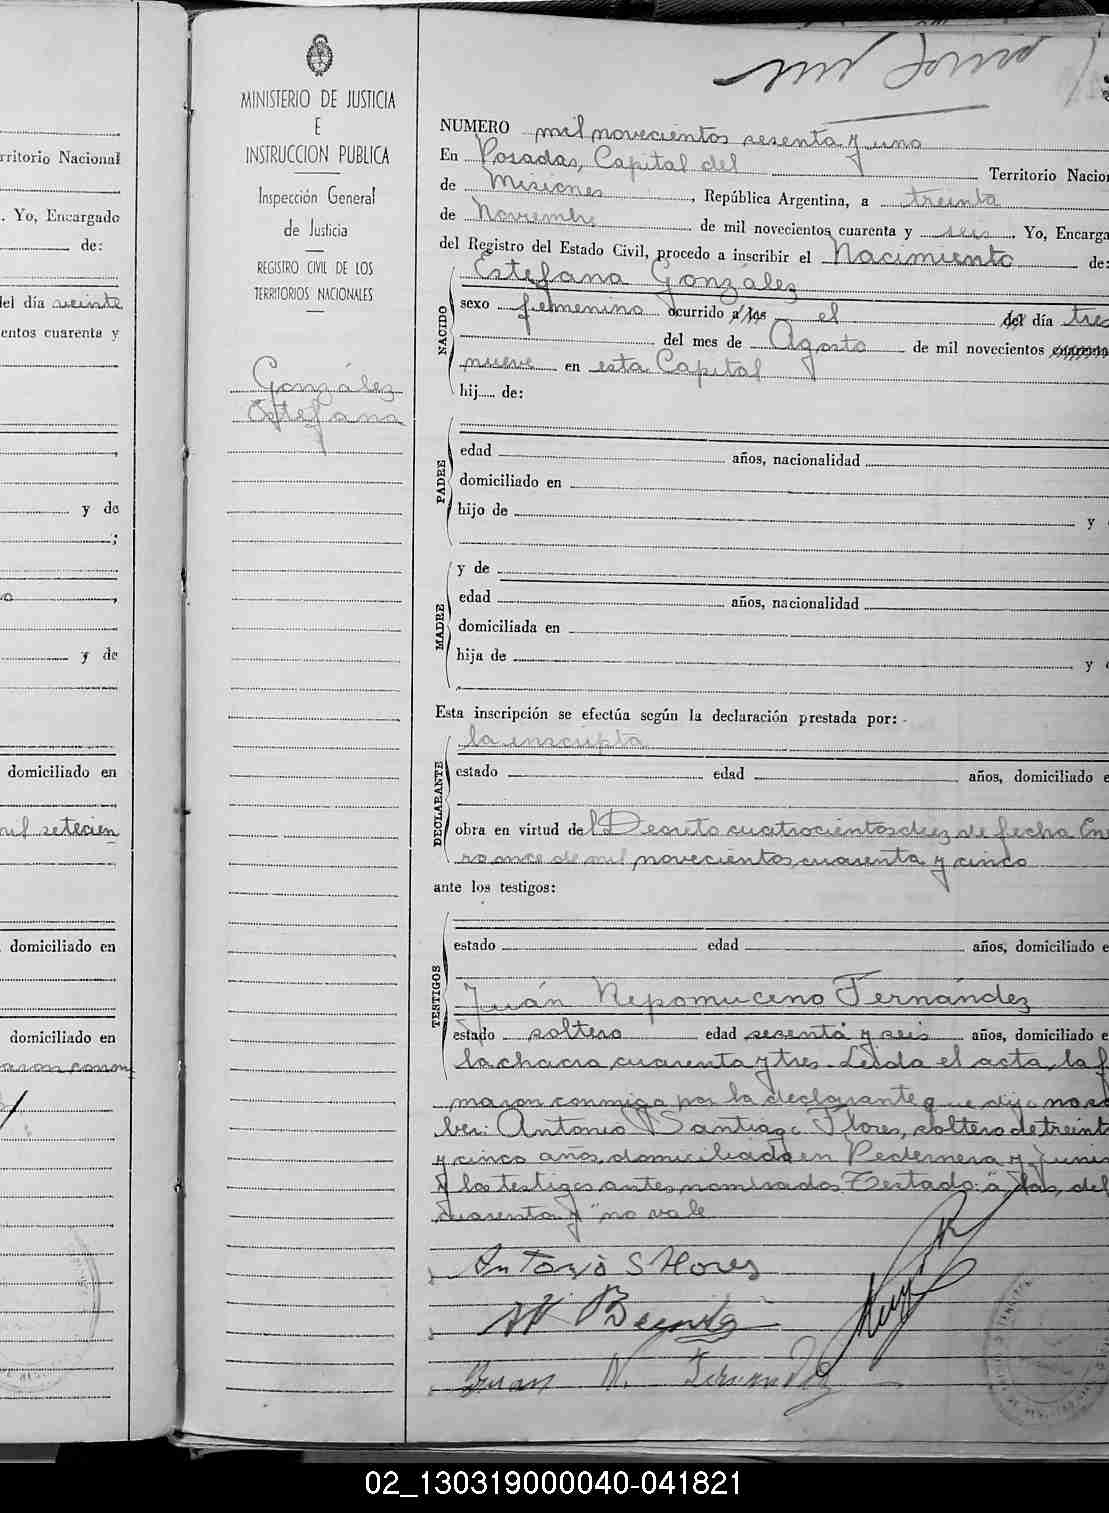 MINISTERIO DE JUSTICIA
E
INSTRUCCION PUBLICA
Inspección General
de Justicia
REGISTRO CIVIL DE LOS
TERRITORIOS NACIONALES
González
Estefana
rritorio Nacional
. Yo, Encargado
de:
del día veinte
entos cuarenta y
y de
y de
domiciliado en
mil setecien
domiciliado en
domiciliado en
NUMERO mil novecientos sesenta y uno
En Posadas, Capital del Territorio Nacio
de Misiones, República Argentina, a treinta
de Noviembre de mil novecientos cuarenta y seis. Yo, Encarga
del Registro del Estado Civil, procedo a inscribir el Nacimiento de:
NACIDO
Estefana González
sexo femenino ocurrido a las el del día tres
del mes de Agosto de mil novecientos cuarenta
nueve en esta Capital
hij..... de:
PADRE
edad años, nacionalidad
domiciliado en
hijo de y
MADRE
y de
edad años, nacionalidad
domiciliada en
hija de y
Esta inscripción se efectúa según la declaración prestada por:
DECLARANTE
la inscripta
estado edad años, domiciliado e
obra en virtud del Decreto cuatrocientos diez de fecha En
ro once de mil novecientos cuarenta y cinco
ante los testigos:
TESTIGOS
estado edad años, domiciliado e
Juán Nepomuceno Fernández
estado soltero edad sesenta y seis años, domiciliado e
la chacra cuarenta y tres. Leida el acta, la f
maron conmigo por la declarante que dijo no sa
ber: Antonio Santiago Flores, soltero de treinta
y cinco años, domiciliado en Pedernera y Junin
y los testigos antes nombrados Testado: a las, del
cuarenta y "no vale
Antonio S Flores
Juan N. Fernandez
02_130319000040-041821